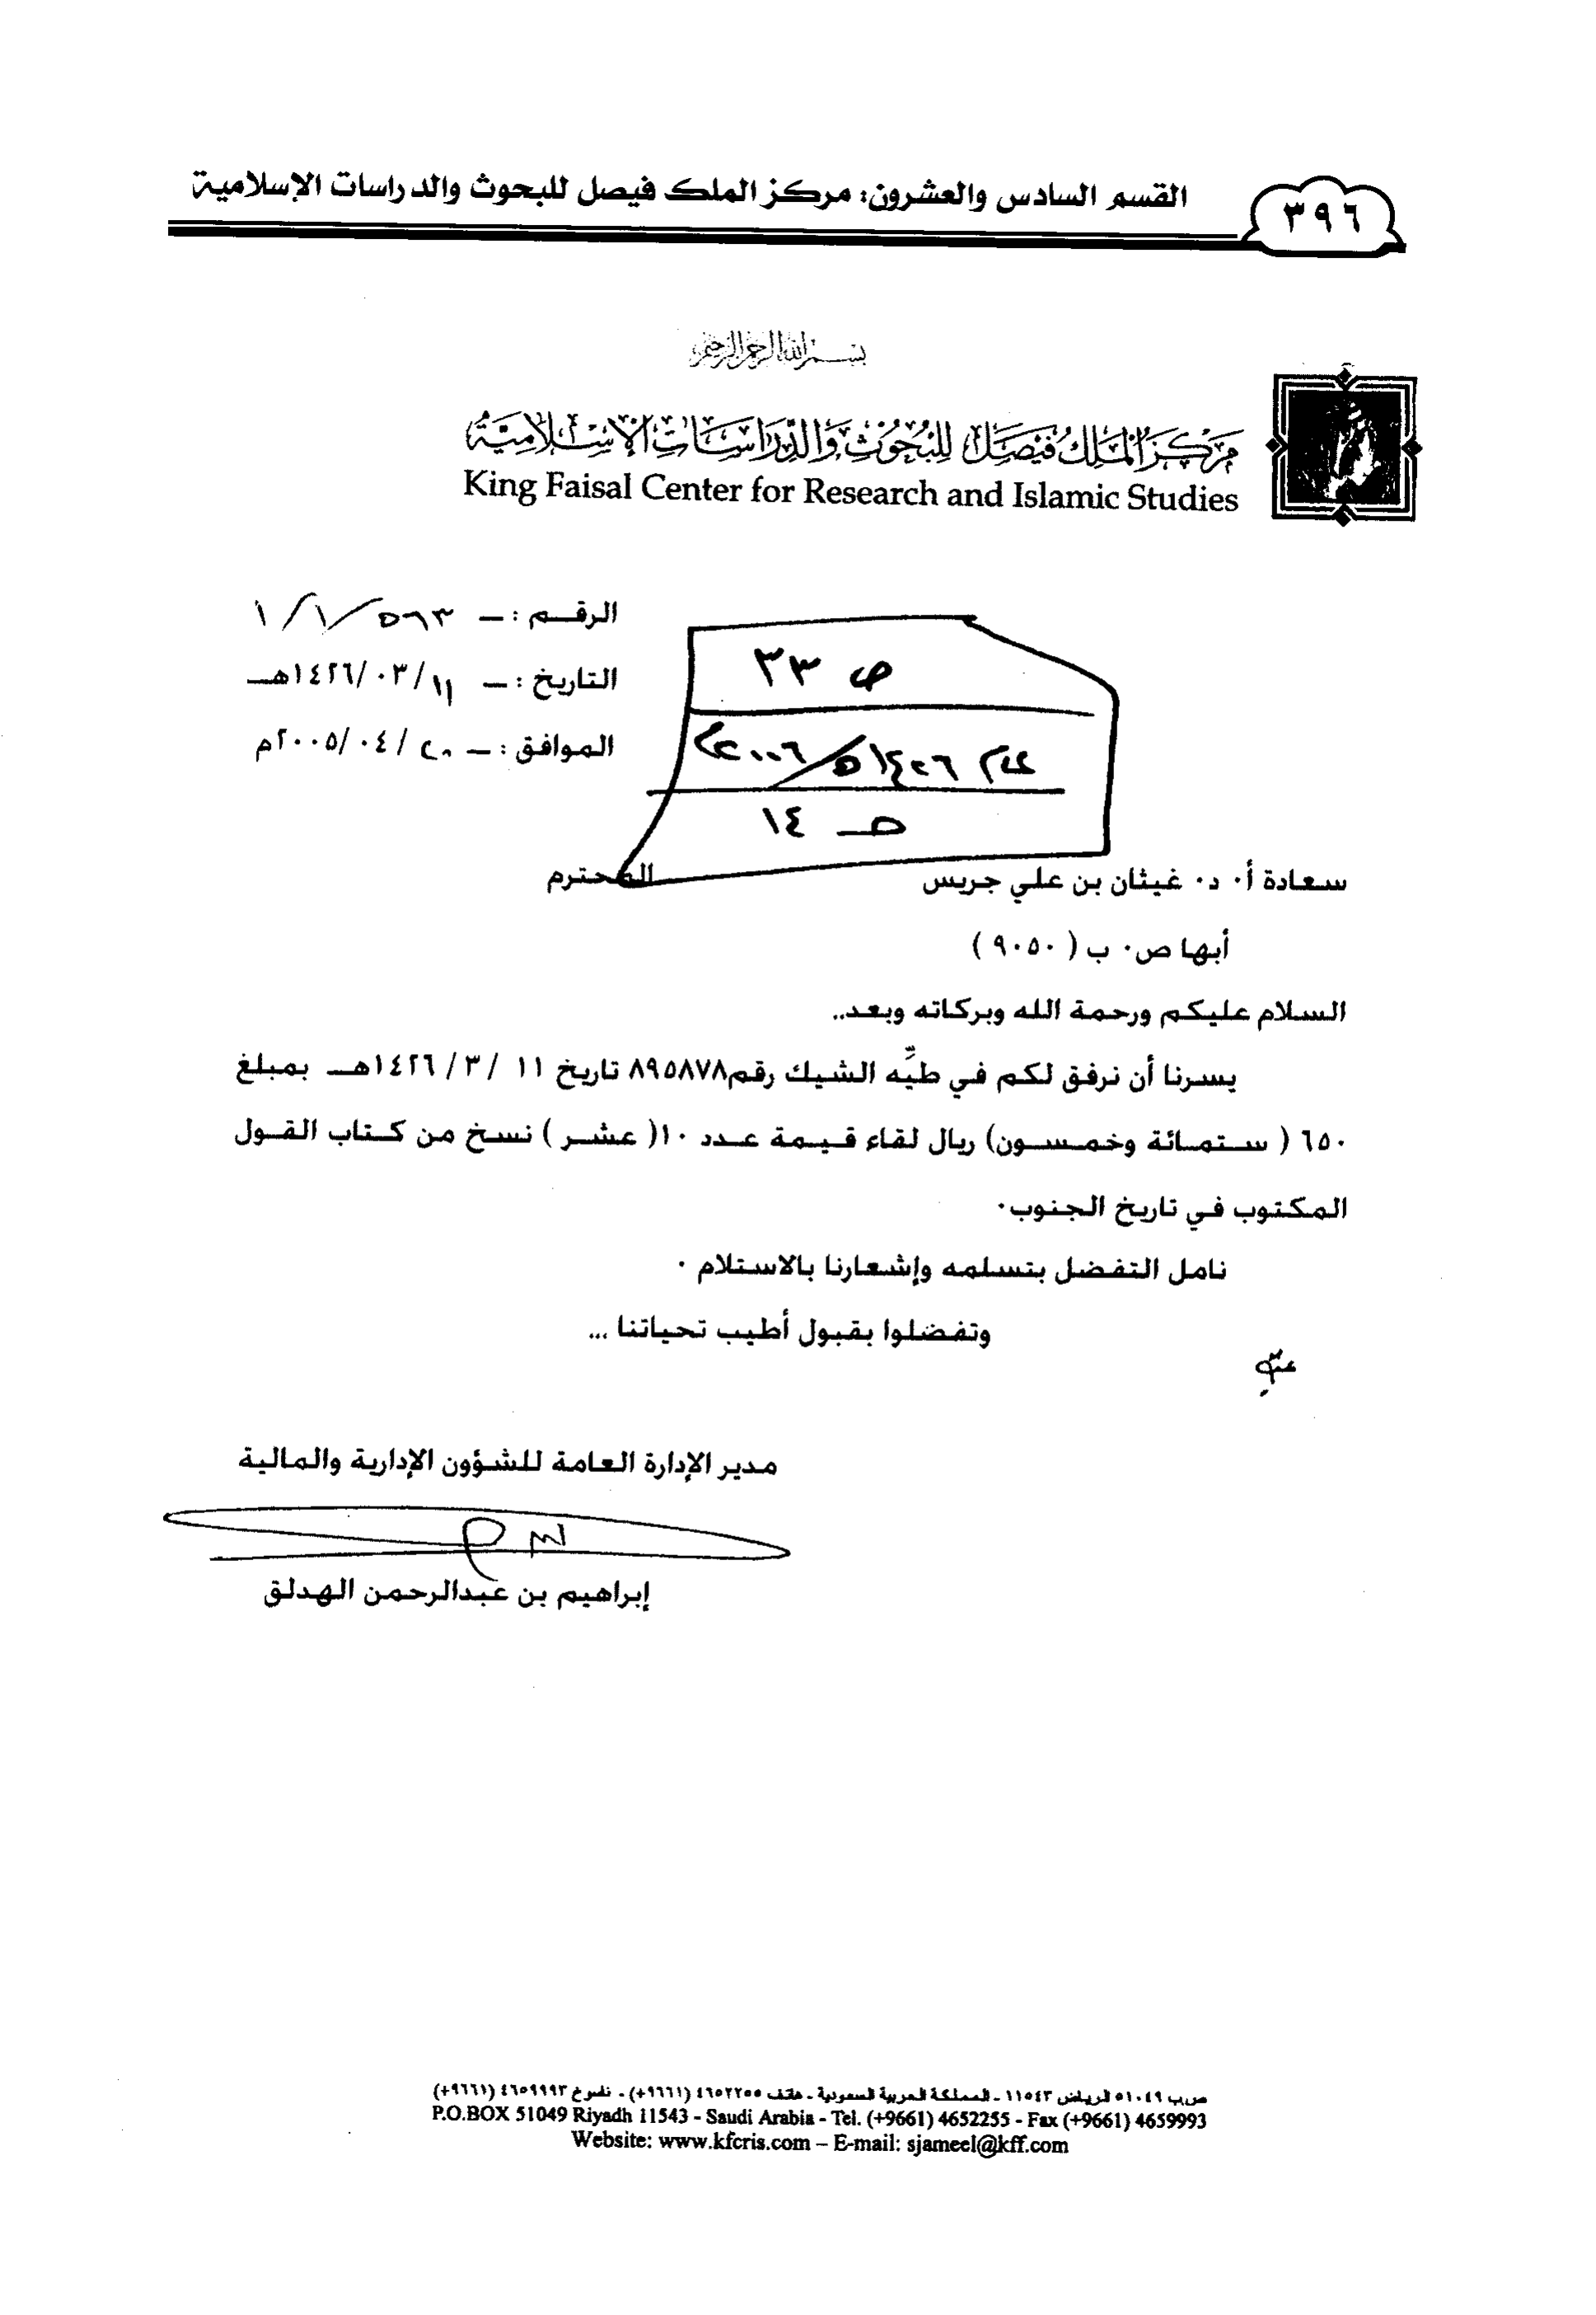 القسم السادس والعشرون: مركز الملك فيصل للبحوث والدراسات الإسلامية
٣٩٦
بسم الله الرحمن الرحيم
مركز الملك فيصل للبحوث والدراسات الإسلامية
King Faisal Center for Research and Islamic Studies
الرقم : – ١/١/٥٦٣
التاريخ : – ١٤٢٦/٠٣/١١هـ
الموافق : – ٢٠٠٥/٠٤/٢٠م
ص ٣٣
١٤٢٦هـ/٢٠٠٦م
هـ ١٤
سعادة أ. د. غيثان بن علي جريس المحترم
أبها ص. ب ( ٩٠٥٠ )
السلام عليكم ورحمة الله وبركاته وبعد..
يسرنا أن نرفق لكم في طيّه الشيك رقم٨٩٥٨٧٨ تاريخ ١١ /٣ /١٤٢٦هـ بمبلغ
٦٥٠ ( ستمائة وخمسون) ريال لقاء قيمة عدد ١٠( عشر ) نسخ من كتاب القول
المكتوب في تاريخ الجنوب.
نامل التفضل بتسلمه وإشعارنا بالاستلام .
وتفضلوا بقبول أطيب تحياتنا ...
مدير الإدارة العامة للشؤون الإدارية والمالية
إبراهيم بن عبدالرحمن الهدلق
ص.ب ٥١٠٤٩ الرياض ١١٥٤٣ - المملكة العربية السعودية - هاتف ٤٦٥٢٢٥٥ (٩٦٦١+) - ناسوخ ٤٦٥٩٩٩٣ (٩٦٦١+)
P.O.BOX 51049 Riyadh 11543 - Saudi Arabia - Tel. (+9661) 4652255 - Fax (+9661) 4659993
Website: www.kfcris.com – E-mail: sjameel@kff.com